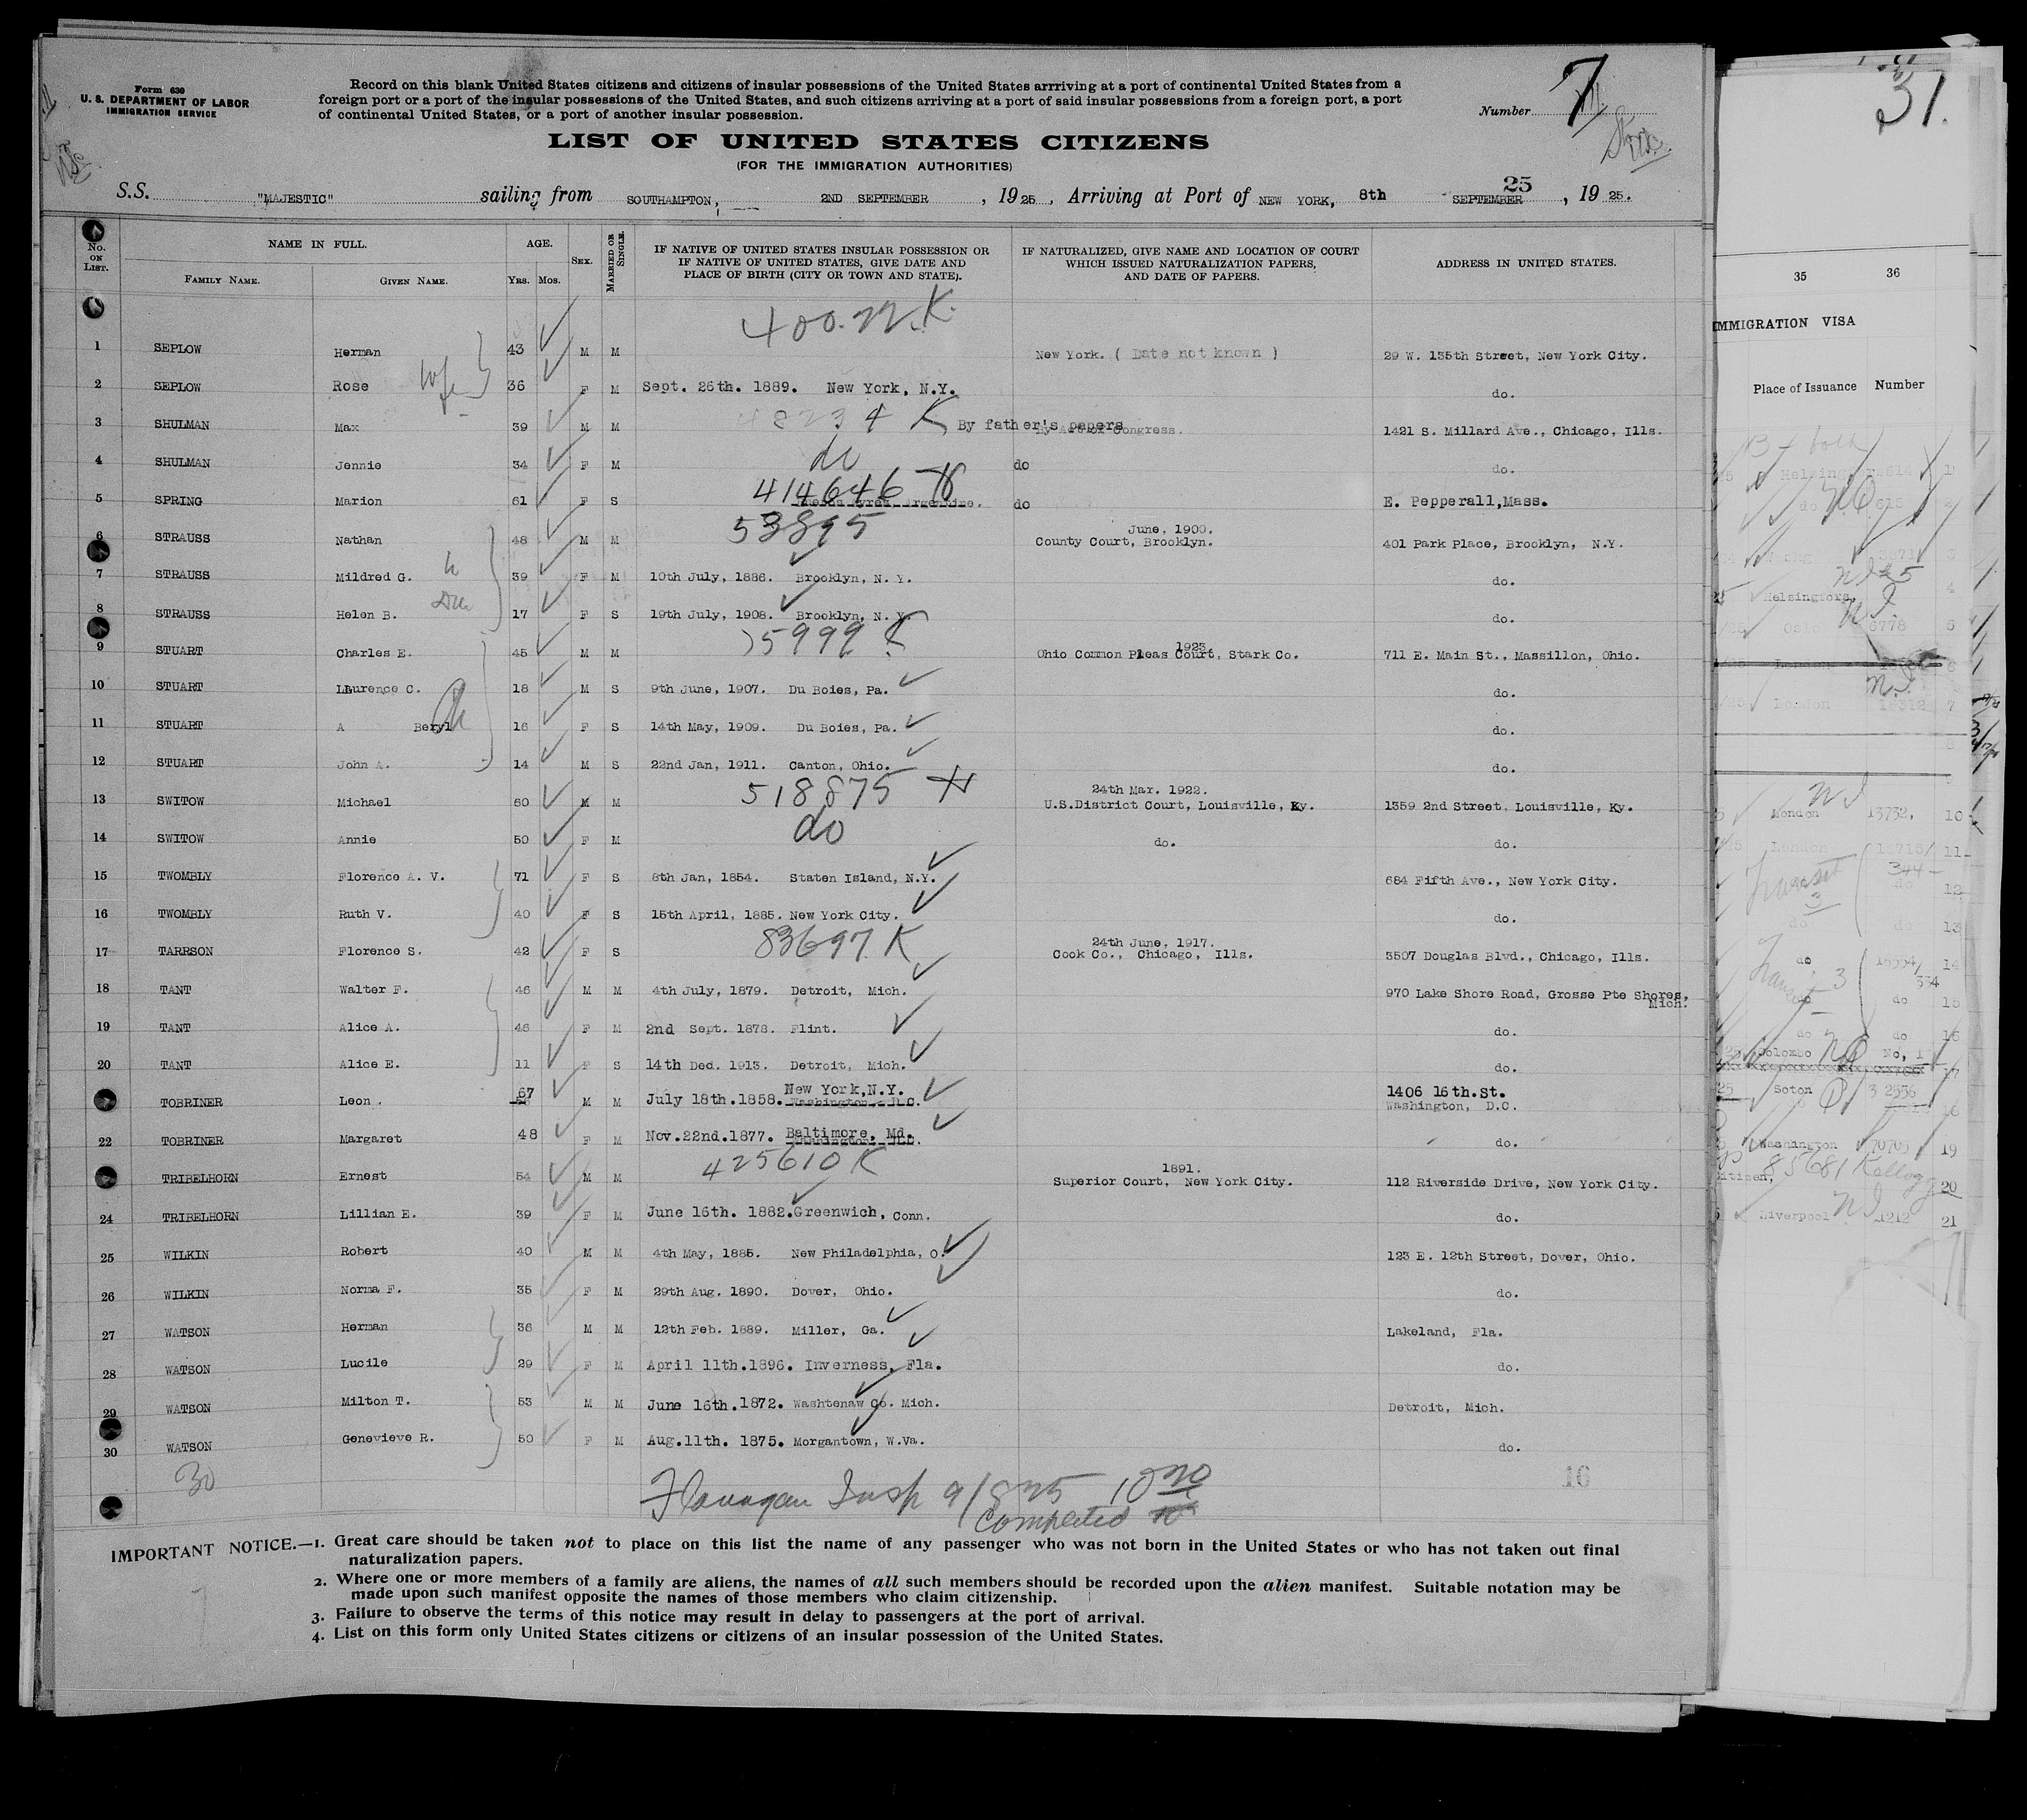 Form 630
U. S. DEPARTMENT OF LABOR
IMMIGRATION SERVICE
Record on this blank United States citizens and citizens of insular possessions of the United States arrriving at a port of continental United States from a
foreign port or a port of the insular possessions of the United States, and such citizens arriving at a port of said insular possessions from a foreign port, a port
of continental United States, or a port of another insular possession.
Number 7
LIST OF UNITED STATES CITIZENS
(FOR THE IMMIGRATION AUTHORITIES)
S.S. "MAJESTIC" sailing from SOUTHAMPTON, 2ND SEPTEMBER, 1925, Arriving at Port of NEW YORK, 8th SEPTEMBER 25, 1925.
No. ON LIST. NAME IN FULL. FAMILY NAME. GIVEN NAME. AGE. YRS. MOS. SEX. MARRIED OR SINGLE. IF NATIVE OF UNITED STATES INSULAR POSSESSION OR IF NATIVE OF UNITED STATES, GIVE DATE AND PLACE OF BIRTH (CITY OR TOWN AND STATE). IF NATURALIZED, GIVE NAME AND LOCATION OF COURT WHICH ISSUED NATURALIZATION PAPERS, AND DATE OF PAPERS. ADDRESS IN UNITED STATES.
1 SEPLOW Herman 43 M M New York. ( Date not known ) 29 W. 135th Street, New York City.
2 SEPLOW Rose wife 36 F M Sept. 26th. 1889. New York, N.Y. do.
3 SHULMAN Max 39 M M 48234 K By father's papers By Act of Congress. 1421 S. Millard Ave., Chicago, Ills.
4 SHULMAN Jennie 34 F M do do do.
5 SPRING Marion 61 F S 414646 Buenos Ayres, Argentine. do E. Pepperall, Mass.
6 STRAUSS Nathan 48 M M 53895 June, 1900. County Court, Brooklyn. 401 Park Place, Brooklyn, N.Y.
7 STRAUSS Mildred G. 39 F M 10th July, 1886. Brooklyn, N. Y. do.
8 STRAUSS Helen B. 17 F S 19th July, 1908. Brooklyn, N. Y. do.
9 STUART Charles E. 45 M M 1923. Ohio Common Pleas Court, Stark Co. 711 E. Main St., Massillon, Ohio.
10 STUART Laurence C. 18 M S 9th June, 1907. Du Boies, Pa. do.
11 STUART A Beryl 16 F S 14th May, 1909. Du Boies, Pa. do.
12 STUART John A. 14 M S 22nd Jan, 1911. Canton, Ohio. do.
13 SWITOW Michael 60 M M 518875 24th Mar. 1922. U.S.District Court, Louisville, Ky. 1359 2nd Street, Louisville, Ky.
14 SWITOW Annie 50 F M do do. do.
15 TWOMBLY Florence A. V. 71 F S 8th Jan, 1854. Staten Island, N.Y. 684 Fifth Ave., New York City.
16 TWOMBLY Ruth V. 40 F S 15th April, 1885. New York City. do.
17 TARRSON Florence S. 42 F S 83697 K 24th June, 1917. Cook Co., Chicago, Ills. 3507 Douglas Blvd., Chicago, Ills.
18 TANT Walter F. 46 M M 4th July, 1879. Detroit, Mich. 970 Lake Shore Road, Grosse Pte Shores, Mich.
19 TANT Alice A. 46 F M 2nd Sept. 1878. Flint. do.
20 TANT Alice E. 11 F S 14th Dec. 1913. Detroit, Mich. do.
TOBRINER Leon. 67 M M July 18th.1858. New York, N.Y. Washington, D.C. 1406 16th.St. Washington, D.C.
22 TOBRINER Margaret 48 F M Nov.22nd.1877. Baltimore, Md. do.
TRIBELHORN Ernest 54 M M 425610 K 1891. Superior Court, New York City. 112 Riverside Drive, New York City.
24 TRIBELHORN Lillian E. 39 F M June 16th. 1882. Greenwich, Conn. do.
25 WILKIN Robert 40 M M 4th May, 1885. New Philadelphia, O. 123 E. 12th Street, Dover, Ohio.
26 WILKIN Norma F. 35 F M 29th Aug. 1890. Dover, Ohio. do.
27 WATSON Herman 36 M M 12th Feb. 1889. Miller, Ga. Lakeland, Fla.
28 WATSON Lucile 29 F M April 11th.1896. Inverness, Fla. do.
29 WATSON Milton T. 53 M M June 16th.1872. Washtenaw Co. Mich. Detroit, Mich.
30 WATSON Genevieve R. 50 F M Aug.11th. 1875. Morgantown, W.Va. do.
30
16
Flanagan Insp 9/8/25 10 20
Completed
IMPORTANT NOTICE.—1. Great care should be taken not to place on this list the name of any passenger who was not born in the United States or who has not taken out final
naturalization papers.
2. Where one or more members of a family are aliens, the names of all such members should be recorded upon the alien manifest. Suitable notation may be
made upon such manifest opposite the names of those members who claim citizenship.
3. Failure to observe the terms of this notice may result in delay to passengers at the port of arrival.
4. List on this form only United States citizens or citizens of an insular possession of the United States.
31.
35 36
IMMIGRATION VISA
Place of Issuance Number
Helsingfors
Oslo 6778
London 16312 7
London 13732, 10
London 11
Transit 344
3 12
do do 13
do 14
334
do 15
do do 16
Colombo No. 1
Soton 2556
Washington 70705 19
85681 Kellogg 20
Liverpool 1212 21